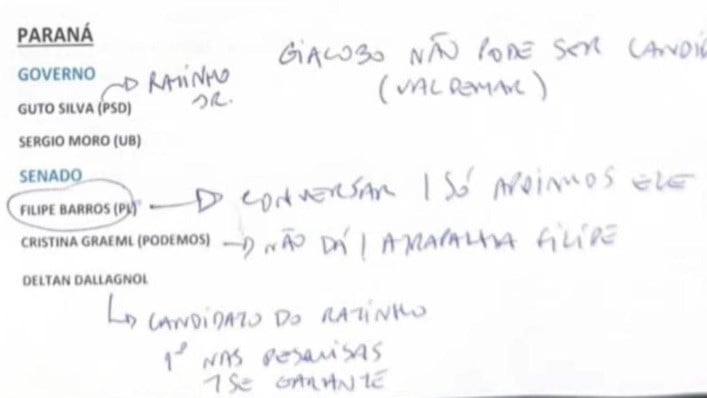 PARANÁ
GIACOBO NÃO PODE SER CANDI
(VALDEMAR)
GOVERNO
GUTO SILVA (PSD) → RATINHO JR.
SERGIO MORO (UB)
SENADO
FILIPE BARROS (PL) → CONVERSAR / SÓ APOIAMOS ELE
CRISTINA GRAEML (PODEMOS) → NÃO DÁ / ATRAPALHA FILIPE
DELTAN DALLAGNOL
↳ CANDIDATO DO RATINHO
1º NAS PESQUISAS
SE GARANTE